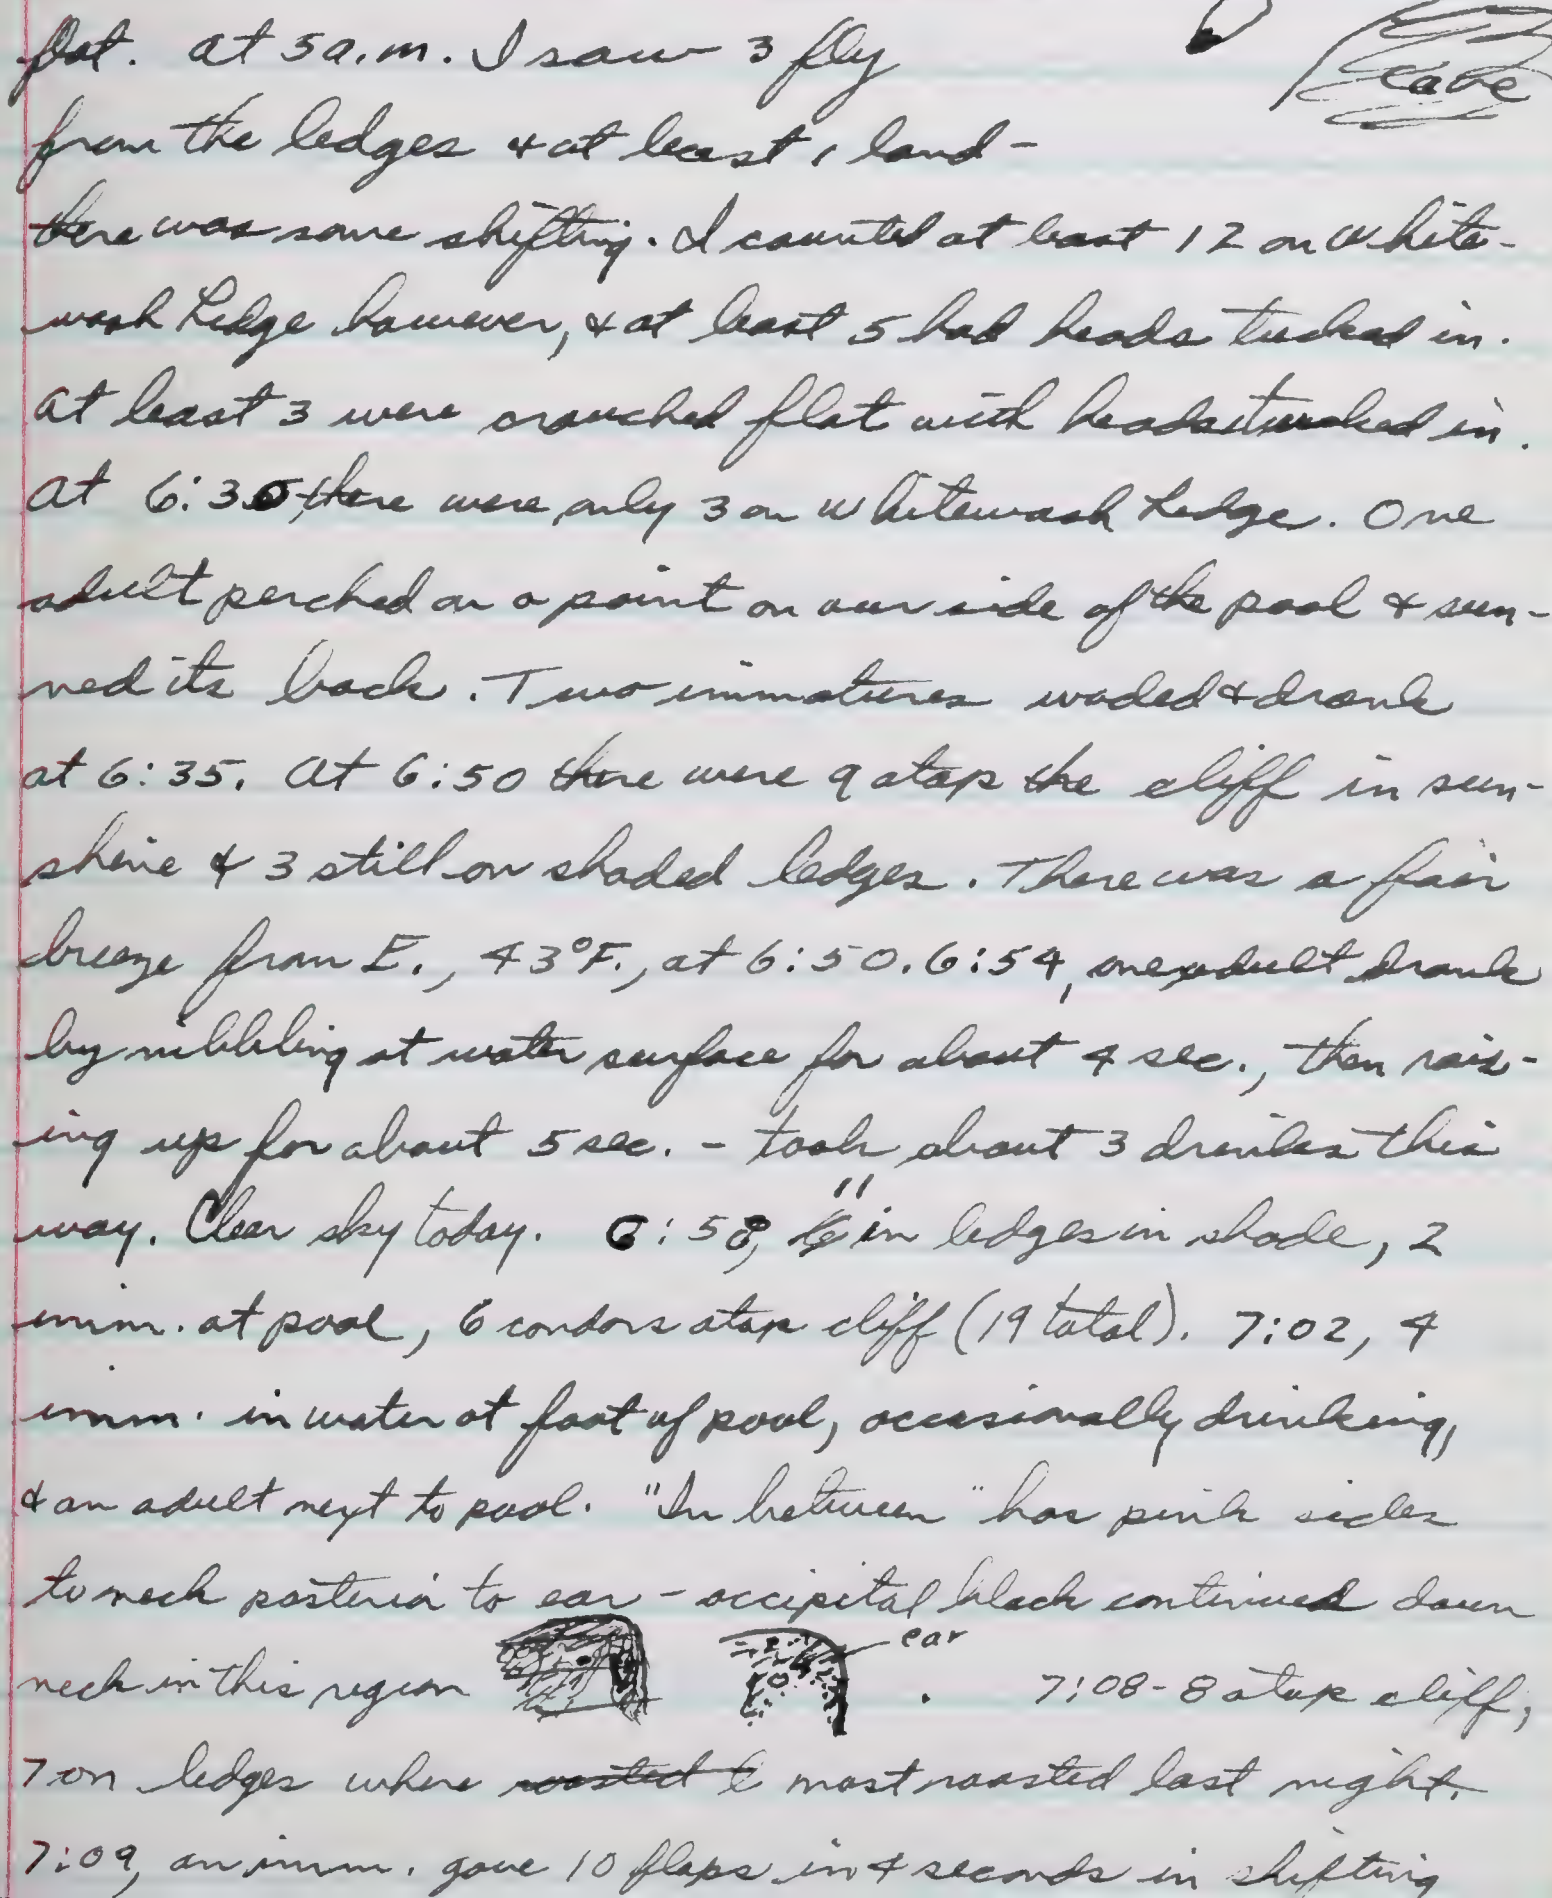 flat. At 5 a.m. I saw 3 fly
cave
from the ledges & at least 1 land -
there was some shifting. I counted at least 12 on White-
wash Ledge however, & at least 5 had heads tucked in.
At least 3 were crouched flat with heads tucked in.
At 6:30, there were only 3 on Whitewash Ledge. One
adult perched on a point on our side of the pool & sun-
ned its back. Two immatures waded & drank
at 6:35. At 6:50 there were 9 atop the cliff in sun-
shine & 3 still on shaded ledges. There was a fair
breeze from E., 43°F., at 6:50. 6:54, one adult drank
by nibbling at water surface for about 4 sec., then rais-
ing up for about 5 sec. - took about 3 drinks this
way. Clear sky today. 6:58, 11 in ledges in shade, 2
imm. at pool, 6 condors atop cliff (19 total). 7:02, 4
imm. in water at foot of pool, occasionally drinking,
& an adult next to pool. "In between" has pink sides
to neck posterior to ear - occipital black continued down
ear
neck in this region . 7:08 - 8 atop cliff,
7 on ledges where roosted most roosted last night.
7:09, an imm. gave 10 flaps in 4 seconds in shifting